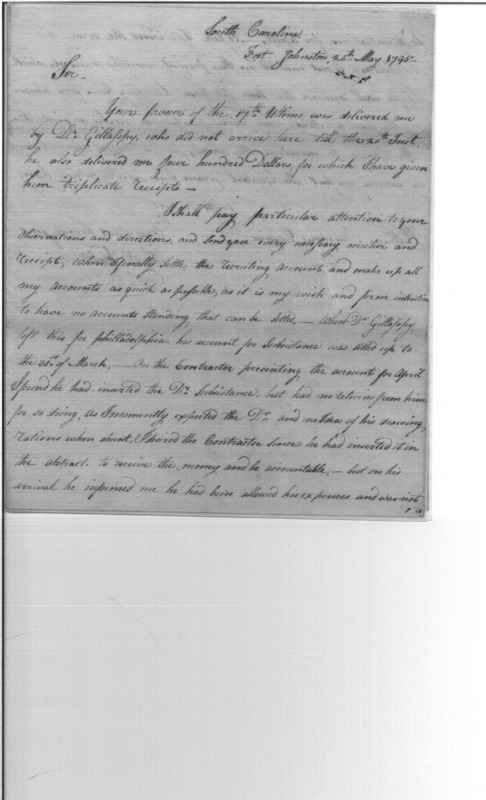 South Carolina
Fort Johnston, 24th May 1795 —
Sir —
Your favour of the 17th Ultimo was delivered me
by Dr. Gillaspy, who did not arrive here till the 20th Inst.
he also delivered me four hundred Dollars for which I have given
him triplicate receipts —
I shall pay particular attention to your
observations and directions, and send you every necessary and
receipt, when I finally settle the recruiting account, and make up all
my accounts as quick as possible, as it is my wish and firm intention
to have no accounts standing that can be settled, — When Dr. Gillaspy
left this for philladelphia his account for Subsistance was settled up to
the 31st of March, — On the Contractor presenting the account for April
I found he had inserted the Drs. Subsistance, but had no returns from him
for so doing, as I momently expected the Dr. and no Idea of his drawing
rations when absent, I desired the Contractor since he had inserted it in
the abstract, to receive the money and be accountable, — but on his
arrival he informed me he had been allowed his expences and was not